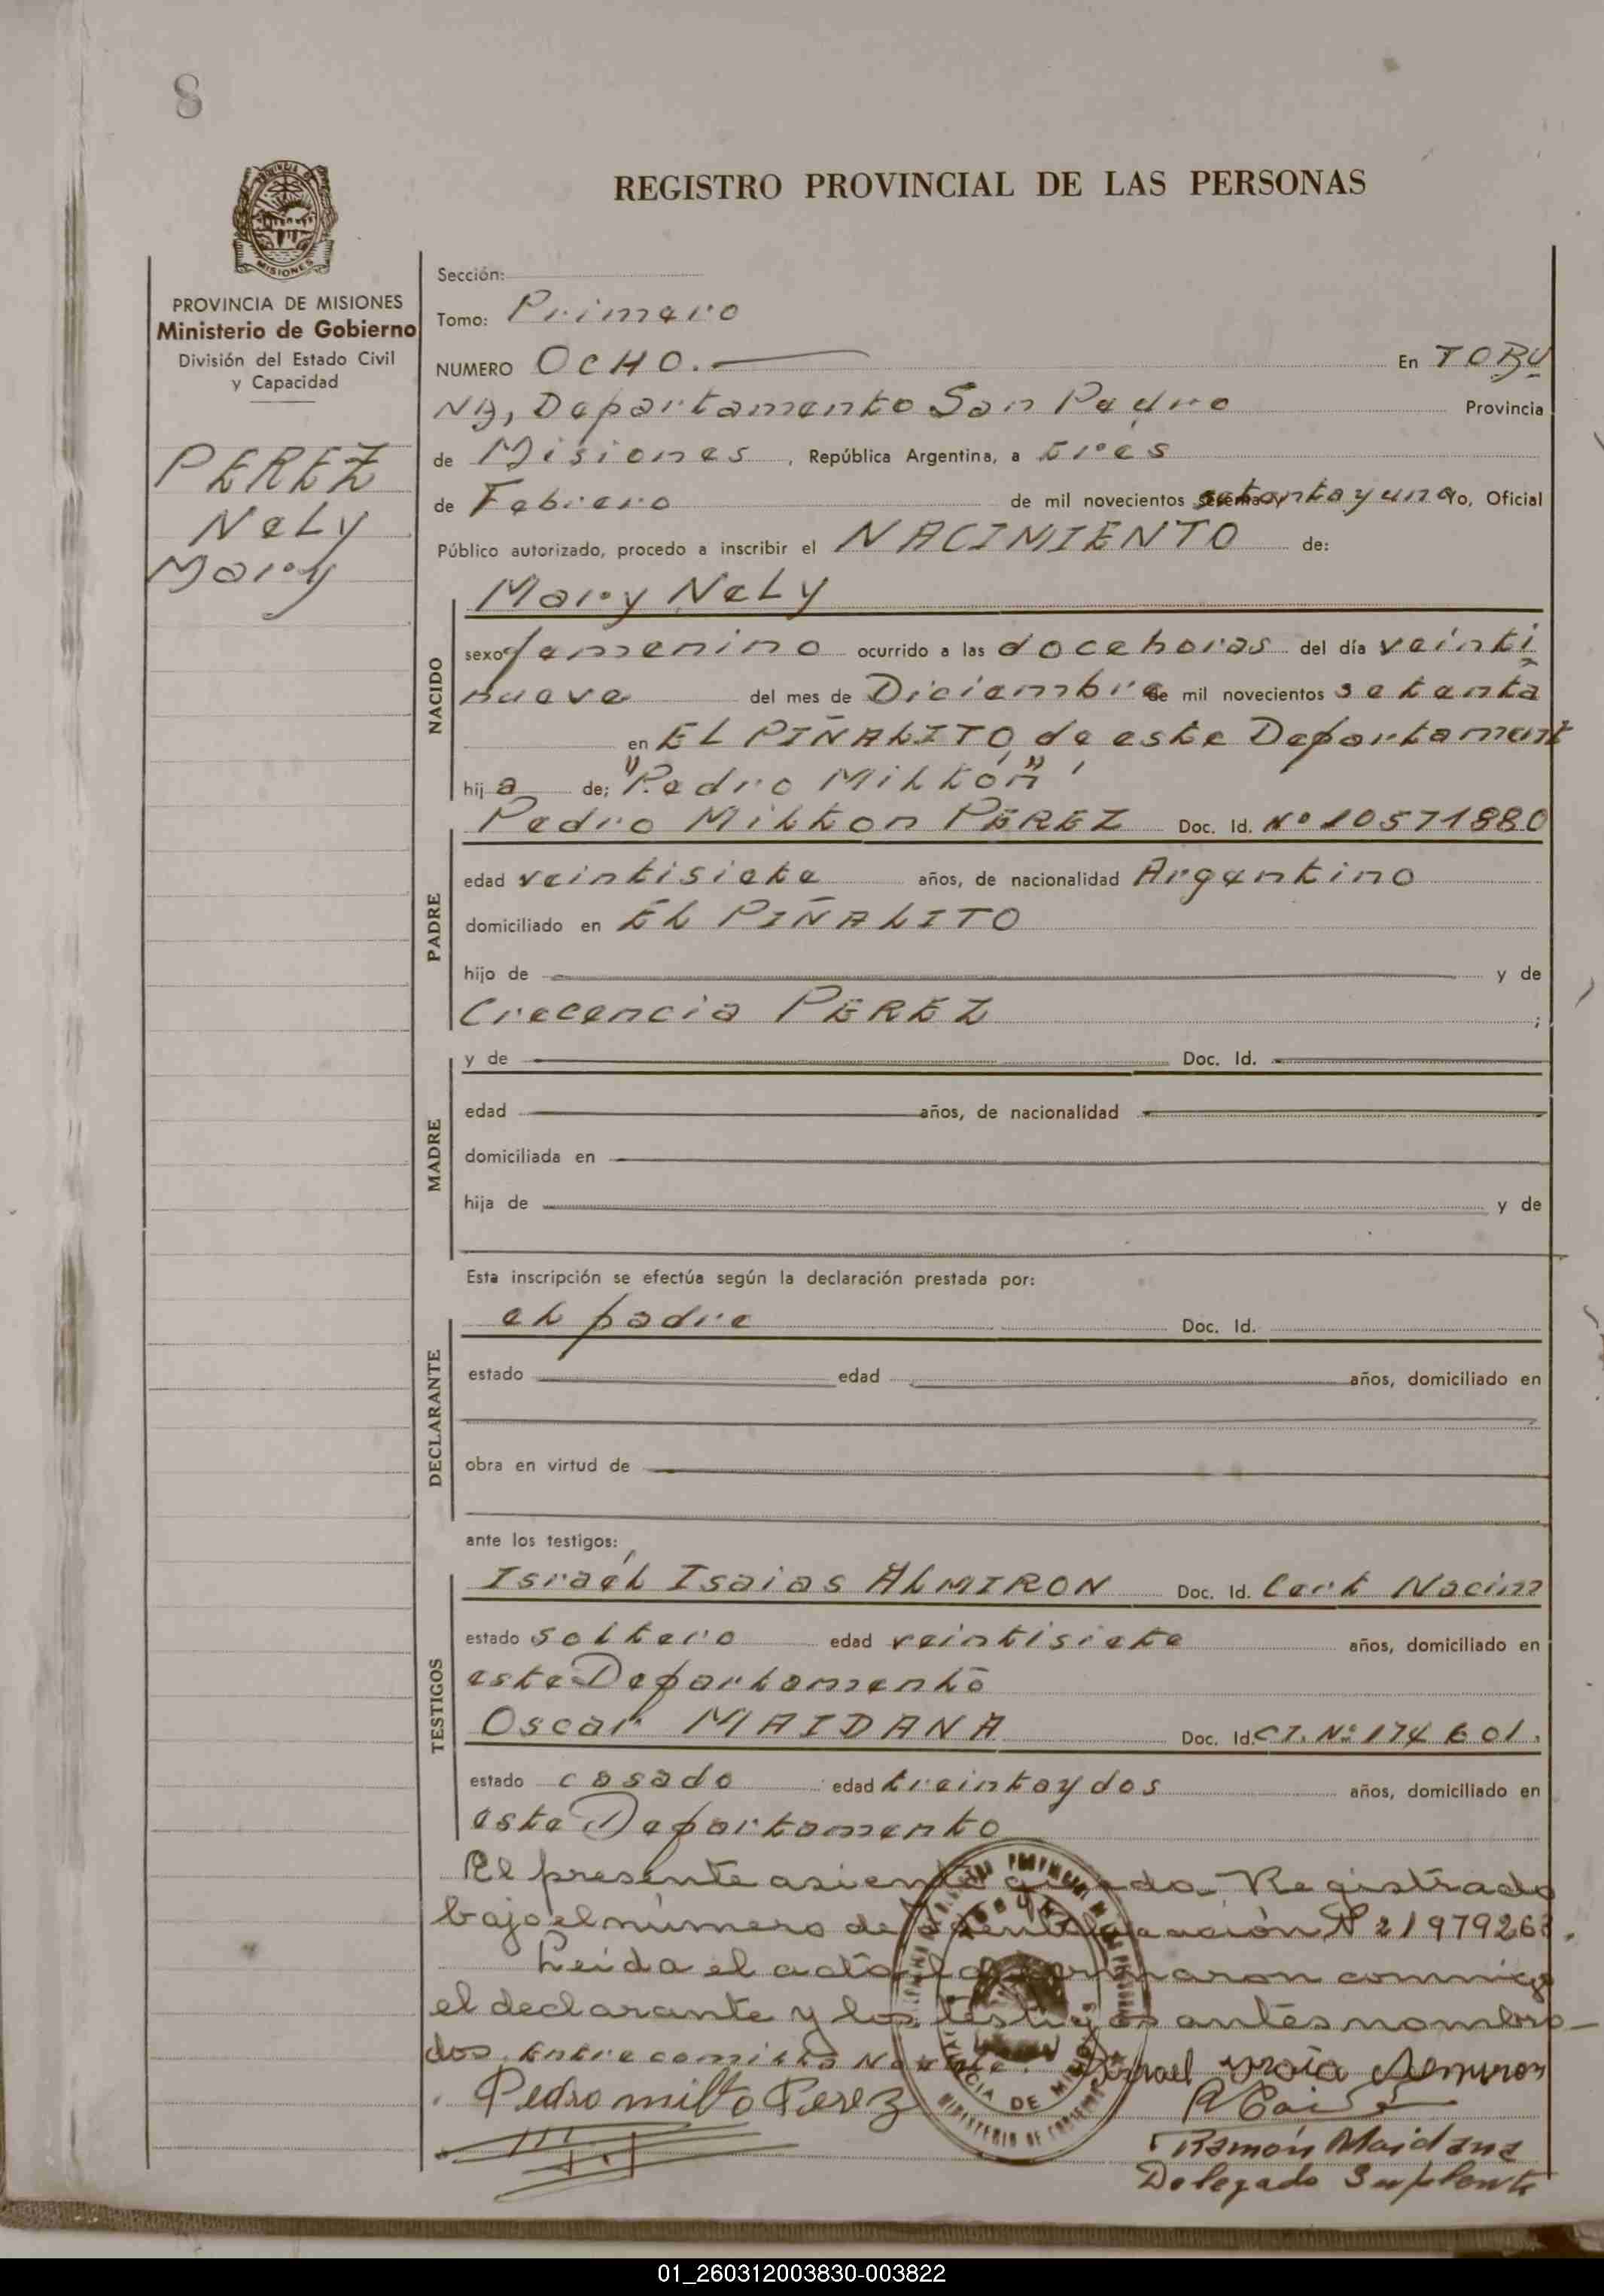 8
REGISTRO PROVINCIAL DE LAS PERSONAS
MISIONES
PROVINCIA DE MISIONES
Ministerio de Gobierno
División del Estado Civil
y Capacidad
PEREZ
Nely
Mary
Sección:
Tomo: Primero
NUMERO OCHO. En TOBU
NA, Departamento San Pedro Provincia
de Misiones, República Argentina, a tres
de Febrero de mil novecientos setenta y uno Yo, Oficial
Público autorizado, procedo a inscribir el NACIMIENTO de:
NACIDO
Mary Nely
sexo femenino ocurrido a las doce horas del día veinti
nueve del mes de Diciembre de mil novecientos setenta
en EL PIÑALITO, de este Departament
hija de; "Pedro Miltón"
PADRE
Pedro Milton PEREZ Doc. Id. Nº 10571880
edad veintisiete años, de nacionalidad Argentino
domiciliado en EL PIÑALITO
hijo de y de
Crecencia PEREZ ;
MADRE
y de Doc. Id.
edad años, de nacionalidad
domiciliada en
hija de y de
Esta inscripción se efectúa según la declaración prestada por:
DECLARANTE
el padre Doc. Id.
estado edad años, domiciliado en
obra en virtud de
ante los testigos:
TESTIGOS
Israél Isaias ALMIRON Doc. Id. Cert Nacim
estado soltero edad veintisiete años, domiciliado en
este Departamento
Oscar MAIDANA Doc. Id. CI. Nº 174601.
estado casado edad treinta y dos años, domiciliado en
este Departamento
El presente asiento queda Registrado
bajo el número de identificación Nº 21979263.
Leida el acta la firmaron conmigo
el declarante y los testigos antes nombra-
dos. Entre comillas No vale.
Pedro milto Perez
Ramón Maidana
Delegado Suplente
01_260312003830-003822